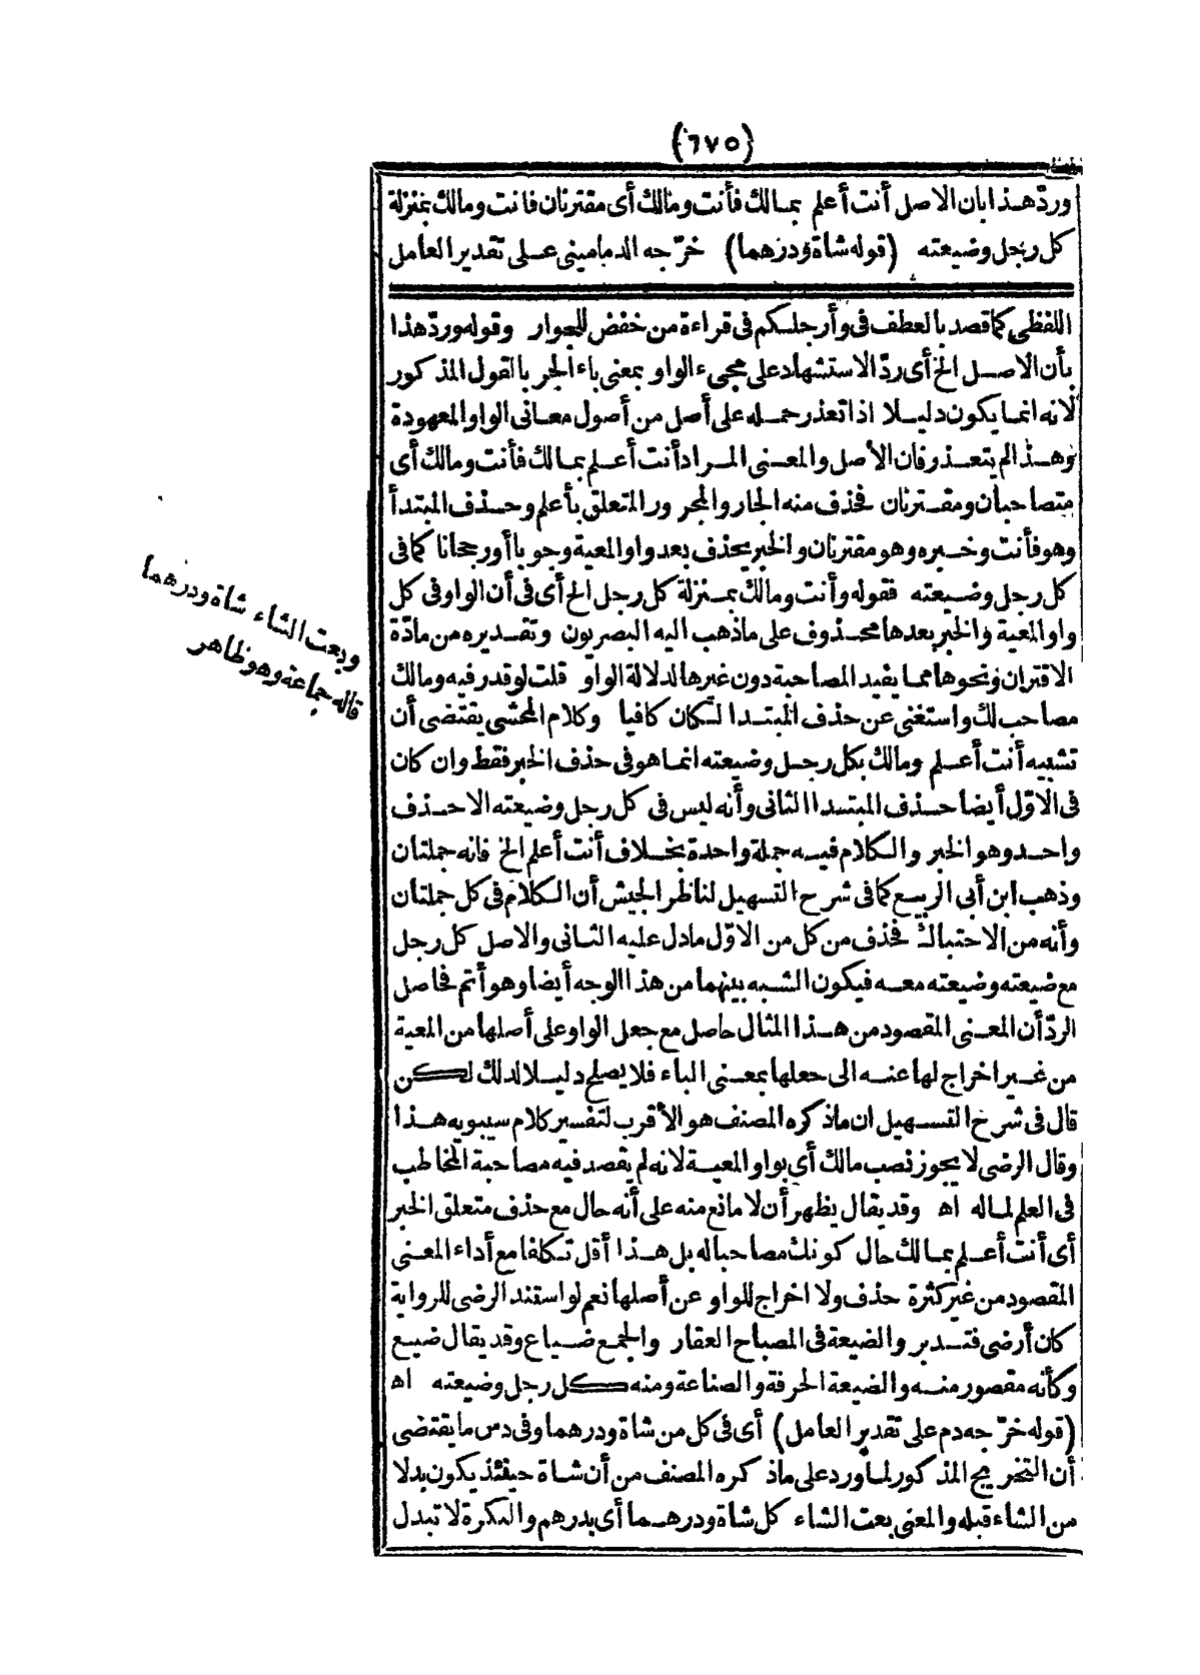 (٦٧٥)
وردّ هذا بان الاصل أنت أعلم بمالك فأنت ومالك أى مقترنان فانت ومالك بمنزلة
كل رجل وضيعته (قوله شاة ودرهما) خرّجه الدمامينى على تقدير العامل
اللفظى كما قصد بالعطف فى وأرجلكم فى قراءة من خفض للجوار وقوله وردّ هذا
بأن الاصل الخ أى ردّ الاستشهاد على مجىء الواو بمعنى باء الجر بالقول المذكور
لانه انما يكون دليلا اذا تعذر حمله على أصل من أصول معانى الواو المعهودة
وهذا لم يتعذر فان الأصل والمعنى المراد أنت أعلم بمالك فأنت ومالك أى
متصاحبان ومقترنان فحذف منه الجار والمجرور المتعلق بأعلم وحذف المبتدأ
وهو فأنت وخبره وهو مقترنان والخبر يحذف بعد واو المعية وجوبا أو رجحانا كما فى
كل رجل وضيعته فقوله وأنت ومالك بمنزلة كل رجل الخ أى فى أن الواو فى كل
واو المعية والخبر بعدها محذوف على ماذهب اليه البصريون وتقديره من مادّة
الاقتران ونحوها مما يفيد المصاحبة دون غيرها لدلالة الواو قلت لو قدر فيه ومالك
مصاحب لك واستغنى عن حذف المبتدا لكان كافيا وكلام المحشى يقتضى أن
تشبيه أنت أعلم ومالك بكل رجل وضيعته انما هو فى حذف الخبر فقط وان كان
فى الاوّل أيضا حذف المبتدا الثانى وأنه ليس فى كل رجل وضيعته الا حذف
واحد وهو الخبر والكلام فيه جملة واحدة بخلاف أنت أعلم الخ فانه جملتان
وذهب ابن أبى الربيع كما فى شرح التسهيل لناظر الجيش أن الكلام فى كل جملتان
وأنه من الاحتباك فحذف من كل من الاوّل مادل عليه الثانى والاصل كل رجل
مع ضيعته وضيعته معه فيكون الشبه بينهما من هذا الوجه أيضا وهو أتم فحاصل
الردّ أن المعنى المقصود من هذا المثال حاصل مع جعل الواو على أصلها من المعية
من غير اخراج لها عنه الى جعلها بمعنى الباء فلا يصلح دليلا لذلك لكن
قال فى شرح التسهيل ان ماذكره المصنف هو الأقرب لتفسير كلام سيبويه هذا
وقال الرضى لا يجوز نصب مالك أى بواو المعية لانه لم يقصد فيه مصاحبة المخاطب
فى العلم لماله اه وقد يقال يظهر أن لا مانع منه على أنه حال مع حذف متعلق الخبر
أى أنت أعلم بمالك حال كونك مصاحبا له بل هذا أقل تكلفا مع أداء المعنى
المقصود من غير كثرة حذف ولا اخراج للواو عن أصلها نعم لو استند الرضى للرواية
كان أرضى فتدبر والضيعة فى المصباح العقار والجمع ضياع وقد يقال ضيع
وكأنه مقصور منه والضيعة الحرفة والصناعة ومنه كل رجل وضيعته اه
(قوله خرّجه دم على تقدير العامل) أى فى كل من شاة ودرهما وفى دس ما يقتضى
أن التخريج المذكور لما ورد على ماذكره المصنف من أن شاة حينئذ يكون بدلا
من الشاء قبله والمعنى بعت الشاء كل شاة ودرهما أى بدرهم والنكرة لا تبدل
وبعت الشاء شاة ودرهما
قاله جماعة وهو ظاهر